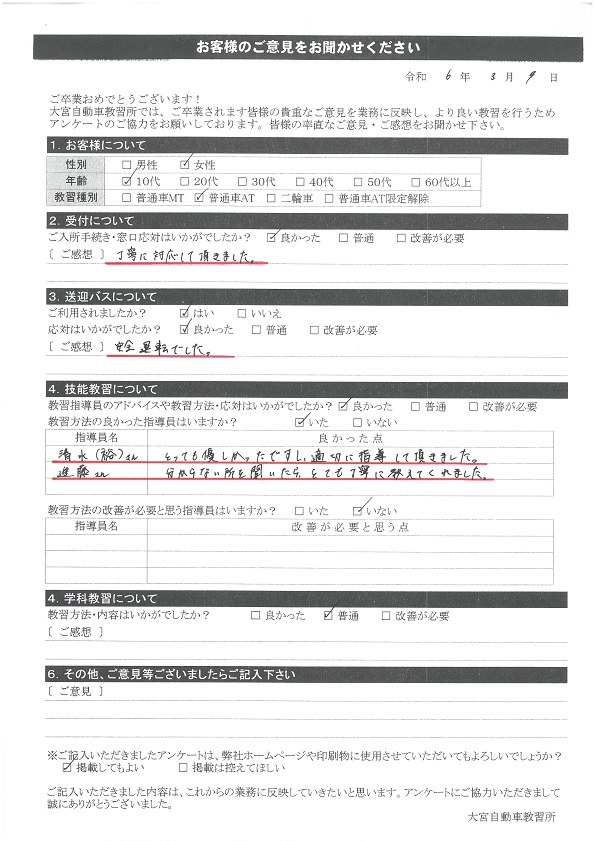 お客様のご意見をお聞かせください
令和 6 年 3 月 9 日
ご卒業おめでとうございます！
大宮自動車教習所では、ご卒業されます皆様の貴重なご意見を業務に反映し、より良い教習を行うため
アンケートのご協力をお願いしております。皆様の率直なご意見・ご感想をお聞かせ下さい。
1. お客様について
性別 □男性 ☑女性
年齢 ☑10代 □20代 □30代 □40代 □50代 □60代以上
教習種別 □普通車MT ☑普通車AT □二輪車 □普通車AT限定解除
2. 受付について
ご入所手続き・窓口応対はいかがでしたか？ ☑良かった □普通 □改善が必要
［ ご感想 ］ 丁寧に対応して頂きました。
3. 送迎バスについて
ご利用されましたか？ ☑はい □いいえ
応対はいかがでしたか？ ☑良かった □普通 □改善が必要
［ ご感想 ］ 安全運転でした。
4. 技能教習について
教習指導員のアドバイスや教習方法・応対はいかがでしたか？ ☑良かった □普通 □改善が必要
教習方法の良かった指導員はいますか？ ☑いた □いない
指導員名 良かった点
清水(裕)さん とっても優しかったですし、適切に指導して頂きました。
進藤さん 分からない所を聞いたら、とても丁寧に教えてくれました。
教習方法の改善が必要と思う指導員はいますか？ □いた ☑いない
指導員名 改善が必要と思う点
4. 学科教習について
教習方法・内容はいかがでしたか？ □良かった ☑普通 □改善が必要
［ ご感想 ］
6. その他、ご意見等ございましたらご記入下さい
［ ご意見 ］
※ご記入いただきましたアンケートは、弊社ホームページや印刷物に使用させていただいてもよろしいでしょうか？
☑掲載してもよい □掲載は控えてほしい
ご記入いただきました内容は、これからの業務に反映していきたいと思います。アンケートにご協力いただきまして
誠にありがとうございました。
大宮自動車教習所